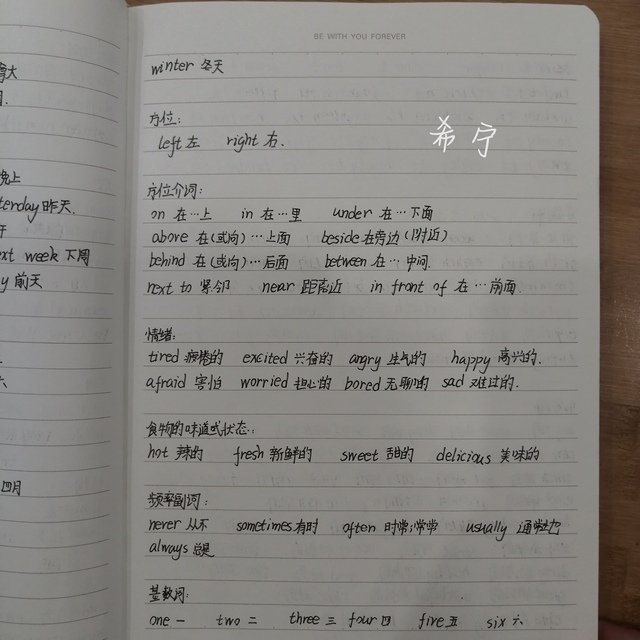 BE WITH YOU FOREVER
winter 冬天
方位:
left 左 right 右.
希宁
方位介词:
on 在…上 in 在…里 under 在…下面
above 在(或向)…上面 beside 在旁边(附近)
behind 在(或向)…后面 between 在…中间.
next to 紧邻 near 距离近 in front of 在…前面.
情绪:
tired 疲惫的 excited 兴奋的 angry 生气的 happy 高兴的.
afraid 害怕 worried 担心的 bored 无聊的 sad 难过的.
食物的味道或状态:
hot 辣的 fresh 新鲜的 sweet 甜的 delicious 美味的
频率副词:
never 从不 sometimes 有时 often 时常;常常 usually 通常地
always 总是
基数词:
one 一 two 二 three 三 four 四 five 五 six 六
晚上
yesterday 昨天.
next week 下周
前天
四月